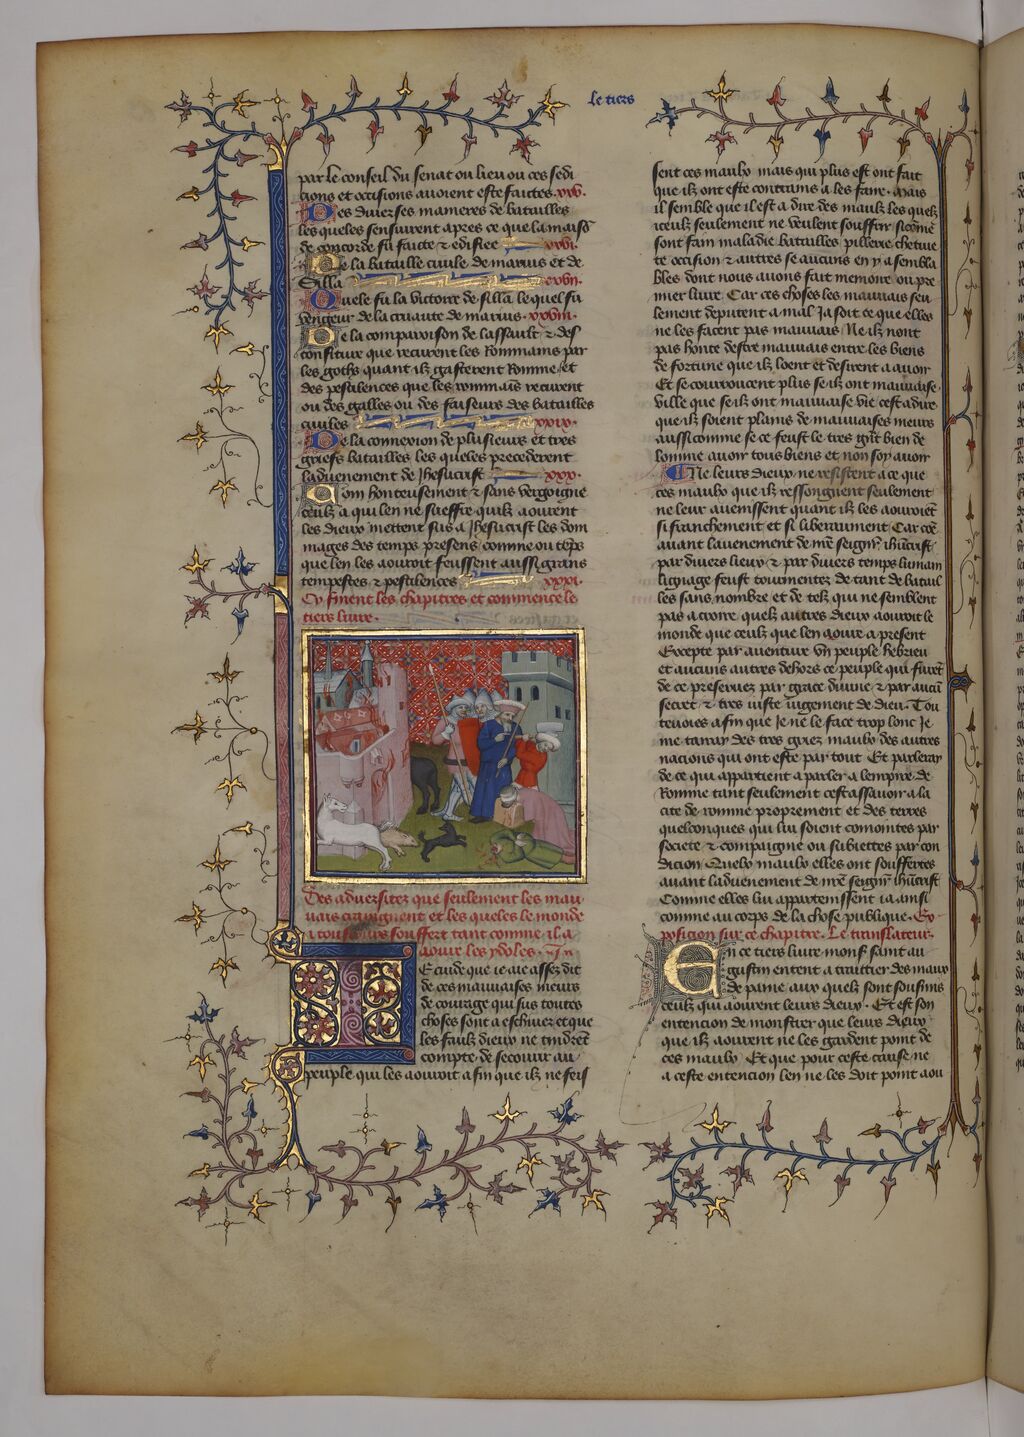 Le tiers
par le conseil du senat ou lieu ou ces sedi
cions et occisions auoient este faictes. xxv.
Des diuerses manieres de batailles
les queles sensuirent apres ce que la maisō
de concorde fu faicte ⁊ edifiee xxvi.
De la bataille ciuile de marius et de
Silla xxvii.
Quele fu la victoire de silla le quel fu
vengeur de la cruaute de marius. xxviii.
De la comparoison de lassault ⁊ des
confiture que recurent les Rommains par
les goths quant ilz gasterent Romme et
des pestilences que les rommais recurent
ou des galles ou des faiseurs des batailles
ciuiles xxix.
De la connexion de plusieurs et tres
griefs batailles les queles precederent
laduenement de Jhesucrist xxx.
Com honteusement ⁊ sans vergoigne
ceulz a qui len ne sueffre quilz aourent
les dieux mettent sus a Jhesucrist les dom
mages des temps presens comme ou tēps
que len les aouroit feussent aussi grans
tempestes ⁊ pestilences xxxi.
Cy finent les chapitres et commence le
tiers liure.
Des aduersitez que seulement les mau
uais craingnent et les queles le monde
a tousiours souffert tant comme il a
aoure les ydoles. Jn
E cuide que ie aie assez dit
de ces mauuaises meurs
de courage qui sus toutes
choses sont a eschiuer et que
les faulz dieux ne tindrēt
compte de secourir au
peuple qui les aouroit afin que ilz ne feis
sent ces maulx mais qui plus est ont fait
que ilz ont este contrains a les faire. Mais
il semble que il est a dire des maulz les quelz
iceulz seulement ne veulent souffrir si cōme
sont fain maladie batailles pillerie chetiue
te occision ⁊ autres se aucuns en y a sembla
bles dont nous auons fait memoire ou pre
mier liure. Car ces choses les mauuais seu
lement deputent a mal Ja soit ce que elles
ne les facent pas mauuais Ne ilz nont
pas honte destre mauuais entre les biens
de fortune que ilz loent et desirent a auoir
Et se courroucent plus se ilz ont mauuaise
ville que se ilz ont mauuaise vie cest a dire
que ilz soient plains de mauuaises meurs
aussi comme se ce feust le tres grāt bien de
lomme auoir tous biens et non soy auoir
Ne leurs dieux ne resistent a ce que
ces maulx que ilz ressongnent seulement
ne leur auenissent quant ilz les aouroiēt
si franchement et si liberaument Car cōe
auant lauenement de nr̄e seignr̄ ihūcrist
par diuers lieux ⁊ par diuers temps lumain
lignage feust tourmentez de tant de batail
les sans nombre et de telz qui ne semblent
pas a croire quelz autres dieux aouroit le
monde que ceulz que len aoure a present
Excepte par auenture vn peuple hebrieu
et aucuns autres dehors ce peuple qui furēt
de ce preseruez par grace diuine ⁊ par aucū
secret ⁊ tres iuste iugement de dieu. Tou
teuoies afin que Je ne le face trop lonc Je
me tairay des tres griez maulx des autres
nacions qui ont este par tout Et parleray
de ce qui appartient a parler a lempire de
Romme tant seulement cest assauoir a la
cite de romme proprement et des terres
quelconques qui lui soient conioíntes par
societe ⁊ compaignie ou subiettes par con
dicion Quelx maulx elles ont souffertes
auant laduenement de nr̄e seignr̄ ihūcrist
Comme elles lui appartenissent ia ainsi
comme au corps de la chose publique. Ex
posicion sur ce chapitre. Le translateur.
En ce tiers liure mons̄ saint au
gustin entent a traittier des maux
de paine aux quelz sont sousmis
ceulz qui aourent leurs dieux. Et est son
entencion de monstrer que leurs dieux
que ilz aourent ne les gardent point de
ces maulx Et que pour ceste cause ne
a ceste entencion len ne les doit point aou